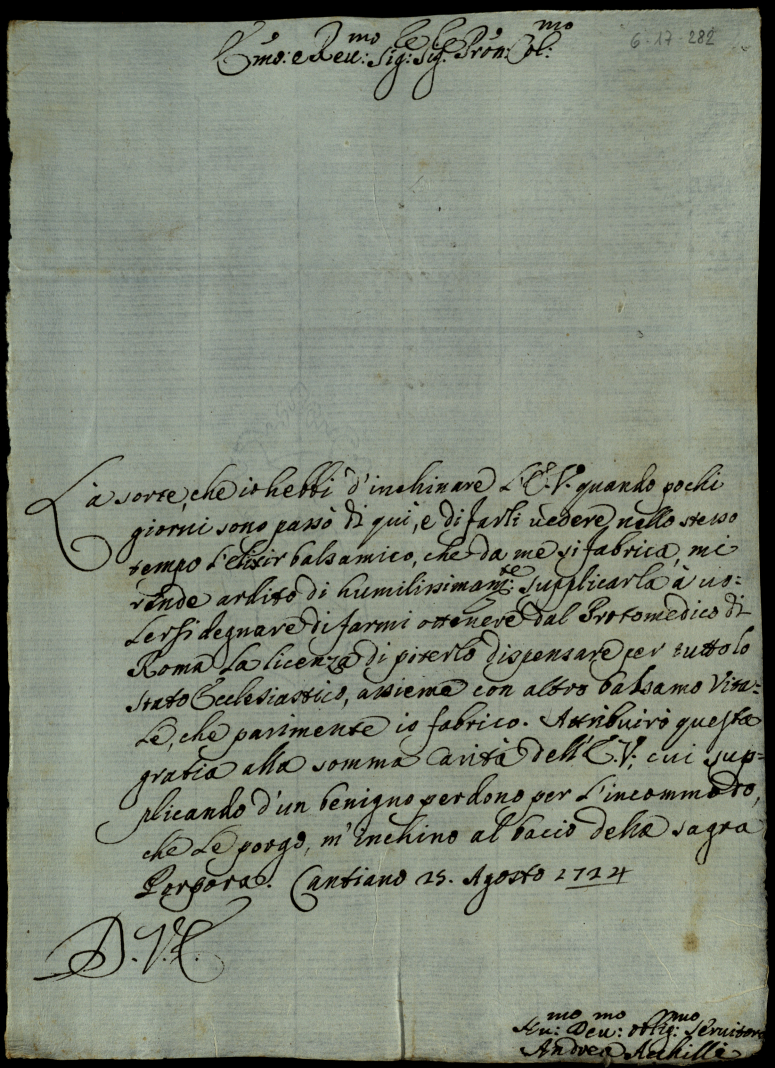 6-17-282
Em̃o: e Reu:mo Sig:re Sig:re Prõn: Col:mo
La sorte, che io hebbi d'inchinare L'E.V. quando pochi
giorni sono passò di qui, e di farli uedere nello stesso
tempo L'elixir balsamico, che da me si fabrica, mi
rende ardito di humilissimam:te supplicarla à uo=
Lersi degnare di farmi ottenere dal Protomedico di
Roma La licenza di poterlo dispensare per tutto lo
stato Ecclesiastico, assieme con altro balsamo Vita=
Le, che parimente io fabrico. Attribuirò questa
gratia alla somma Carità dell'E.V., cui sup=
plicando d'un benigno perdono per l'incommodo,
che Le porgo, m'inchino al bacio della sagra
Porpora. Cantiano 25. Agosto 1724
D.V.E.
Hu:mo Deu:mo oblig:mo Seruitore
Andrea Achilli